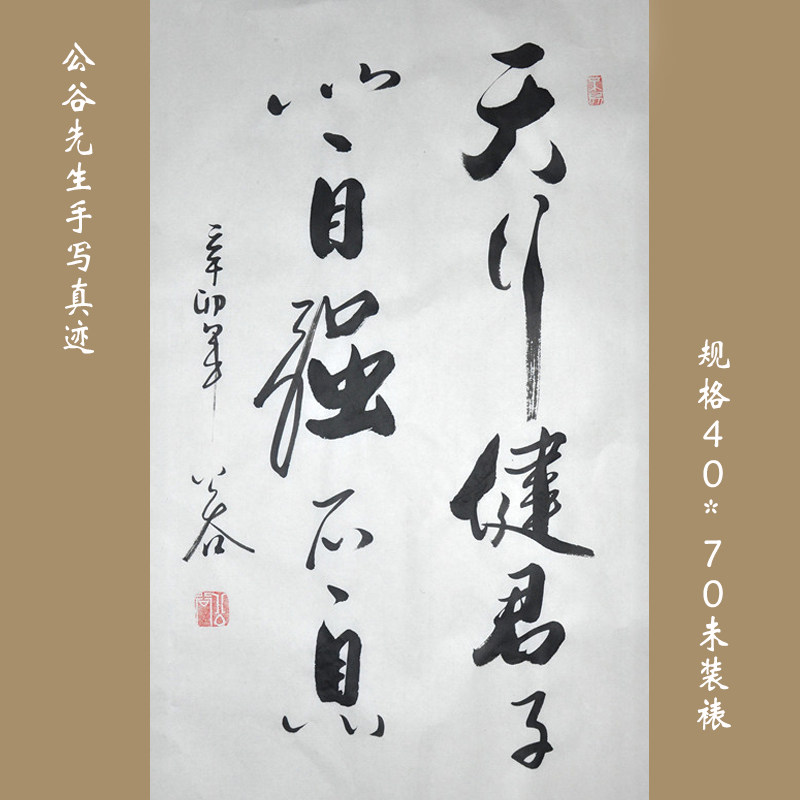 天行健君子
以自强不息
辛卯年
公谷
公谷先生手写真迹
规格40*70未装裱